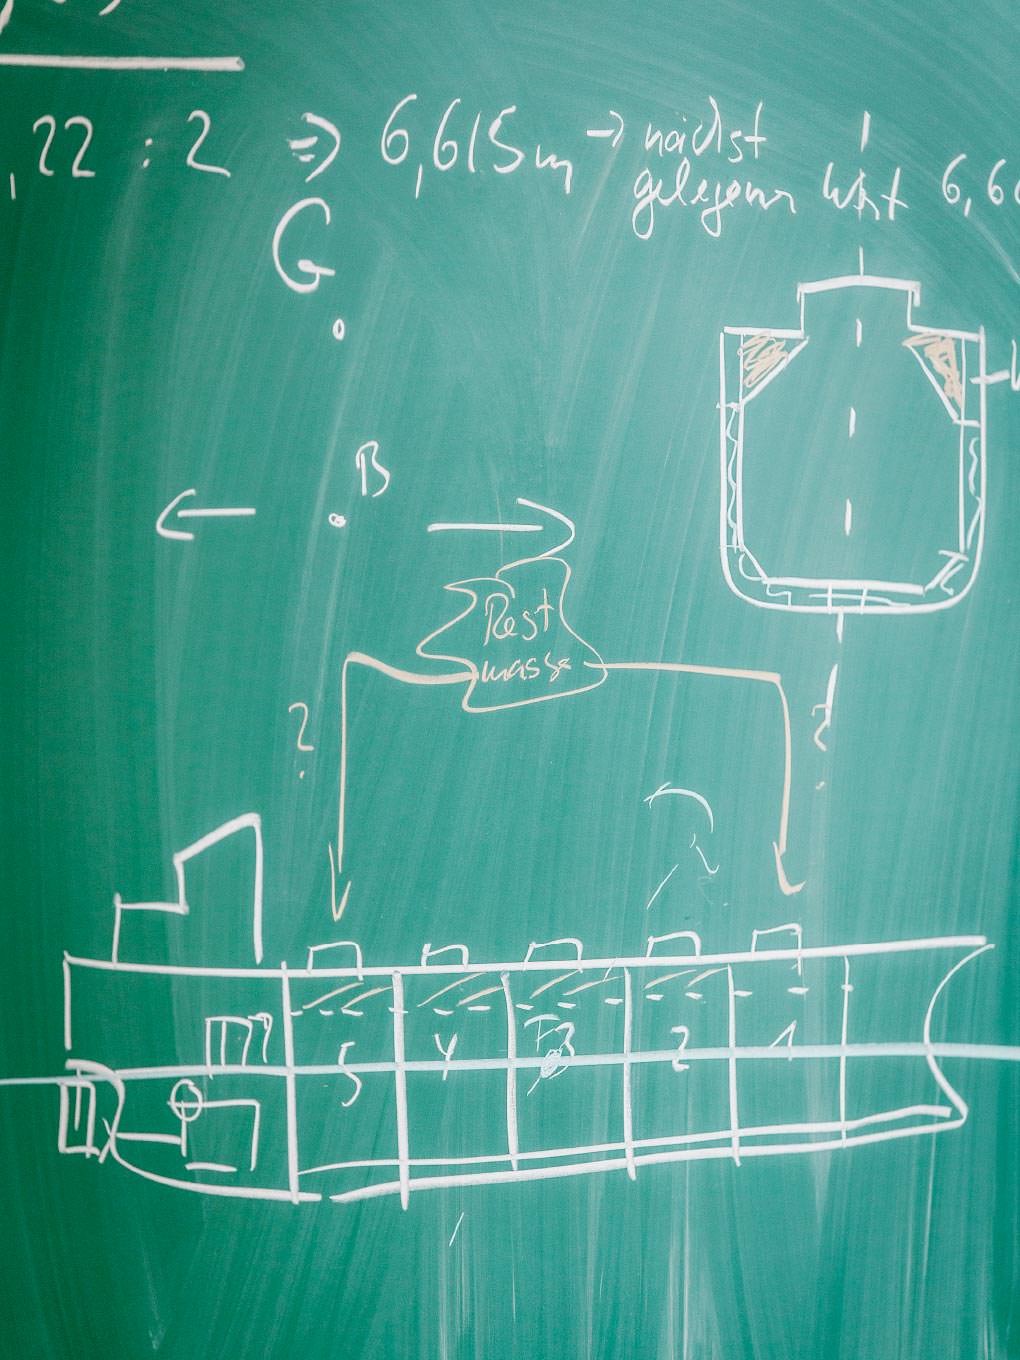 ,22 : 2 ⇒ 6,615m → nächst
gelegener Wert 6,6
G
B
Rest
masse
? ?
5 4 F3 2 1